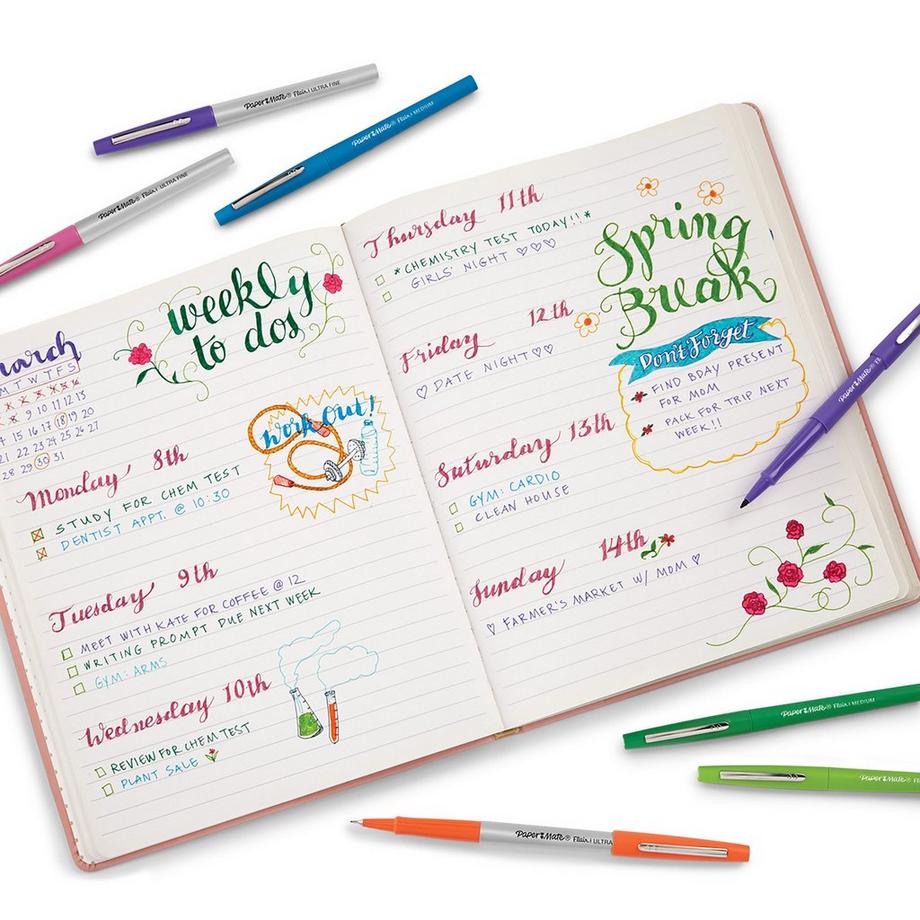 Paper Mate® Flair. ULTRA FINE
Paper Mate® Flair. MEDIUM
Paper Mate® Flair. ULTRA FINE
weekly
to dos
March
M T W T F S
9 10 11 12 13
15 16 17 18 19 20
21 22 23 24 25 26 27
28 29 30 31
Work Out!
Monday 8th
STUDY FOR CHEM TEST
DENTIST APPT. @ 10:30
Tuesday 9th
MEET WITH KATE FOR COFFEE @ 12
WRITING PROMPT DUE NEXT WEEK
GYM: ARMS
Wednesday 10th
REVIEW FOR CHEM TEST
PLANT SALE
Thursday 11th
*CHEMISTRY TEST TODAY!!*
GIRLS' NIGHT ♡♡♡
Friday 12th
♡ DATE NIGHT ♡♡
Saturday 13th
GYM: CARDIO
CLEAN HOUSE
Sunday 14th
♡ FARMER'S MARKET W/ MOM ♡
Spring
Break
Don't Forget
FIND BDAY PRESENT
FOR MOM
PACK FOR TRIP NEXT
WEEK!!
Paper Mate®
Paper Mate® Flair. MEDIUM
Paper Mate®
Paper Mate® Flair. ULTRA